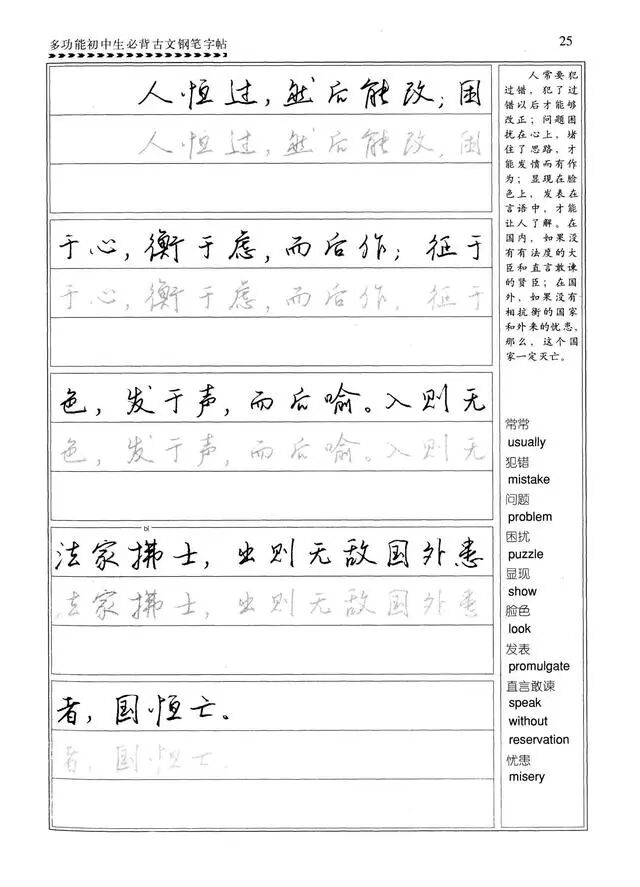 多功能初中生必背古文钢笔字帖
25
人恒过，然后能改；困
人恒过，然后能改，困
于心，衡于虑，而后作；征于
于心，衡于虑，而后作，征于
色，发于声，而后喻。入则无
色，发于声，而后喻。入则无
bì
法家拂士，出则无敌国外患
法家拂士，出则无敌国外患
者，国恒亡。
者，国恒亡.
人常要犯
过错，犯了过
错以后才能够
改正；问题困
扰在心上，堵
住了思路，才
能发愤而有作
为；显现在脸
色上，发表在
言语中，才能
让人了解。在
国内，如果没
有有法度的大
臣和直言敢谏
的贤臣；在国
外，如果没有
相抗衡的国家
和外来的忧患，
那么，这个国
家一定灭亡。
常常
usually
犯错
mistake
问题
problem
困扰
puzzle
显现
show
脸色
look
发表
promulgate
直言敢谏
speak
without
reservation
忧患
misery